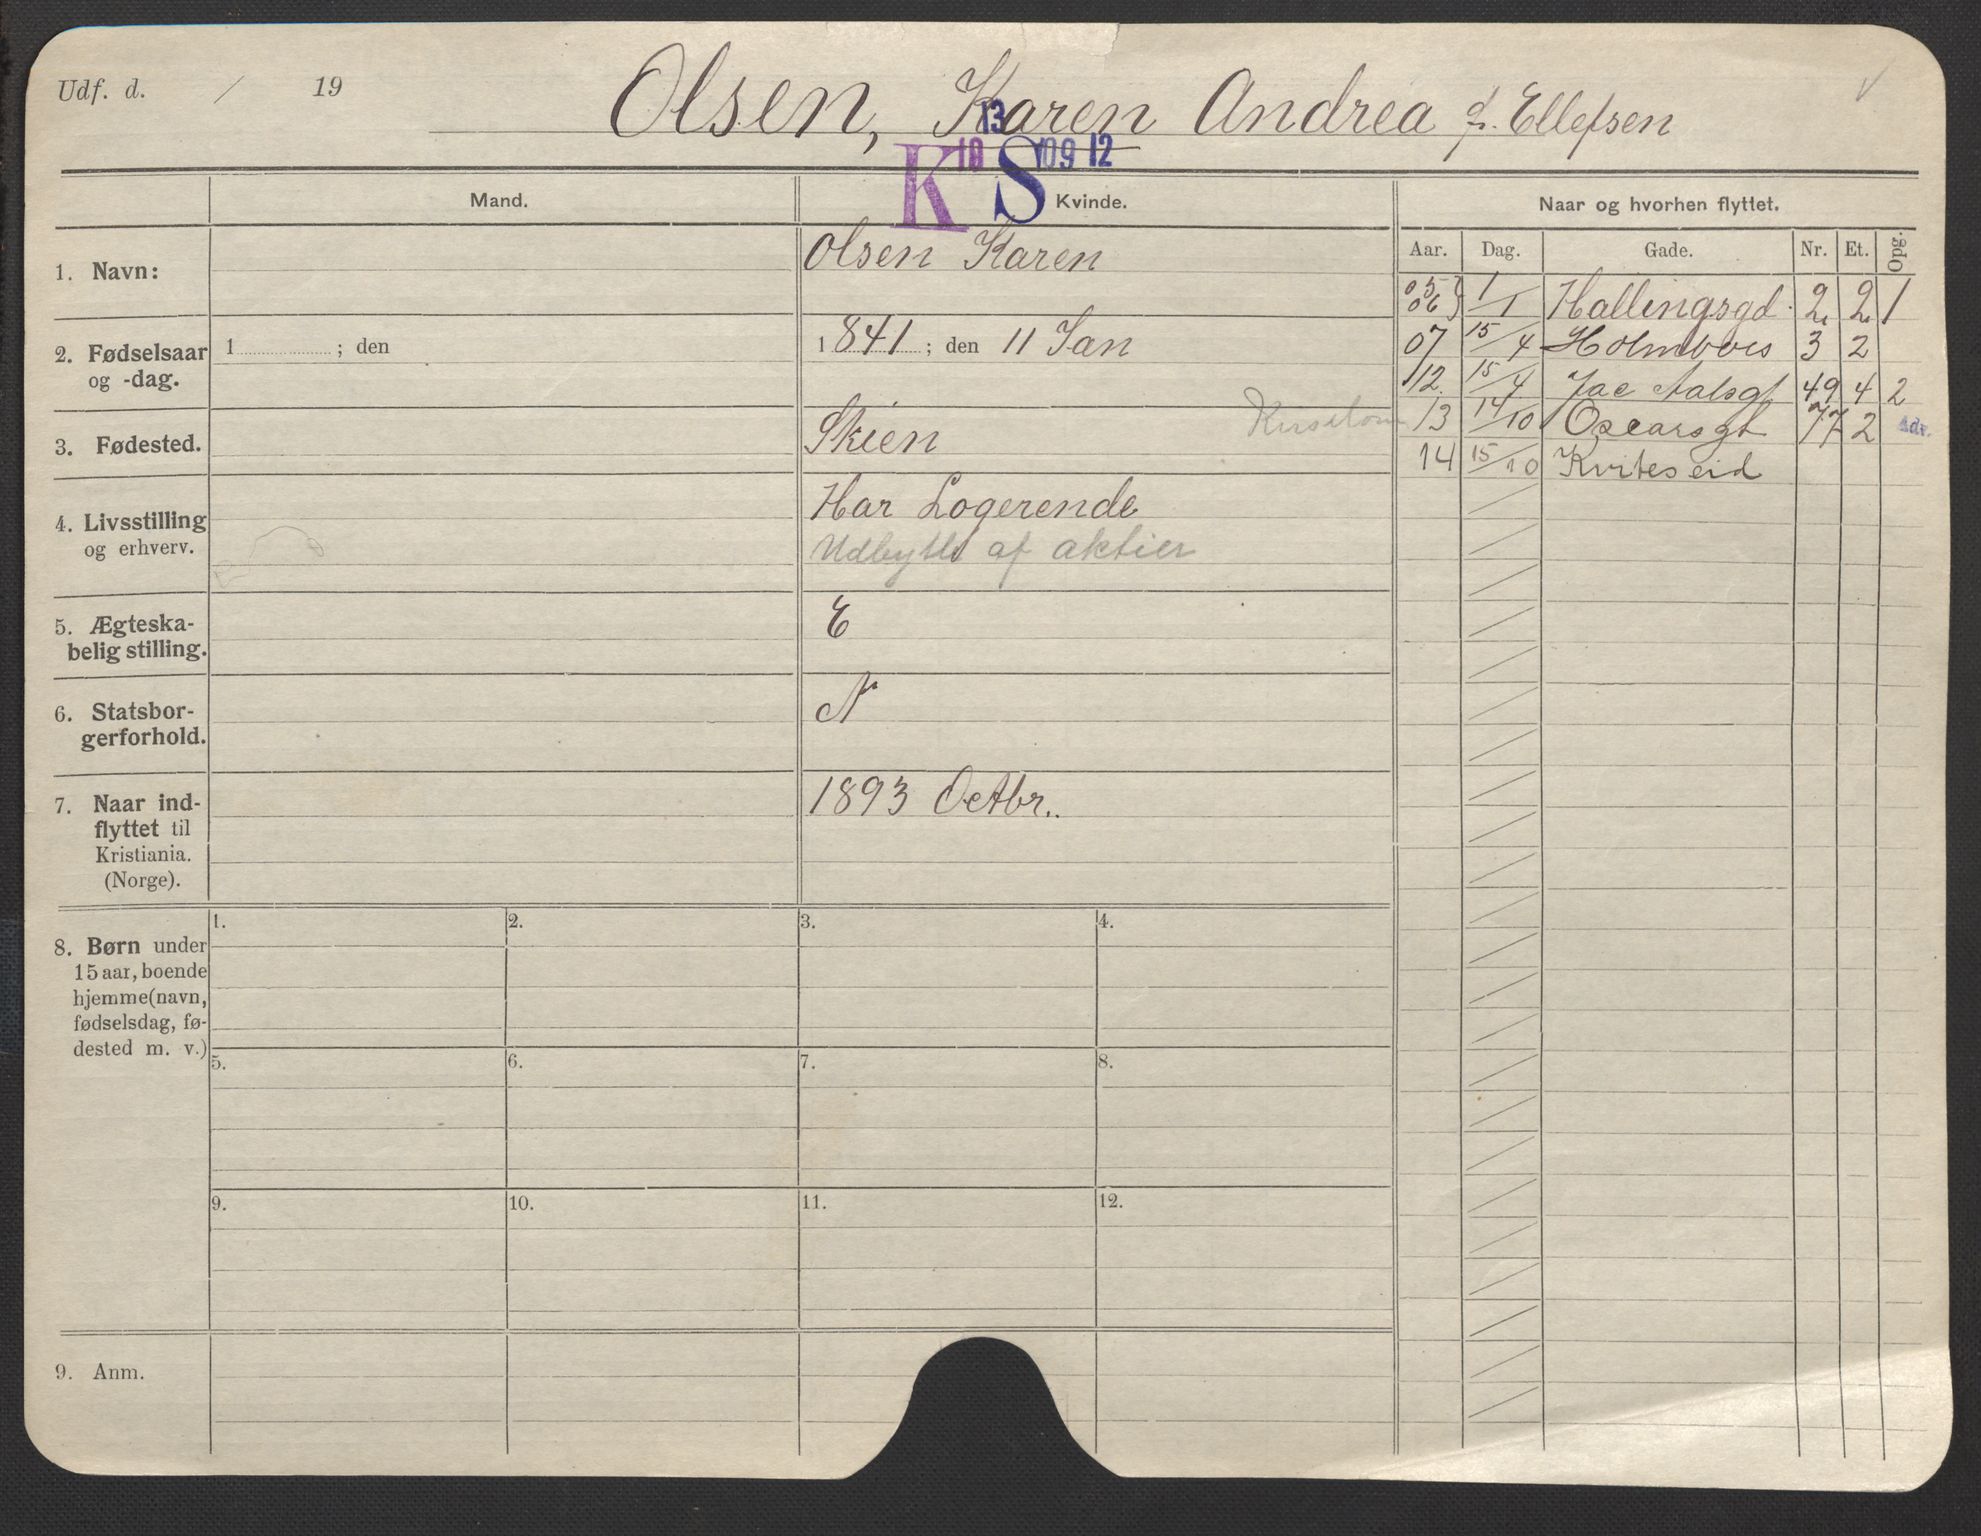 Udf. d. / 19
Olsen, Karen Andrea f. Ellefsen
13
K 10 S 09 12
Mand.
Kvinde.
Naar og hvorhen flyttet.
Aar. Dag. Gade. Nr. Et. Opg.
1. Navn:
Olsen Karen
2. Fødselsaar
og -dag.
1 ; den
1841 ; den 11 Jan
3. Fødested.
Skien
4. Livsstilling
og erhverv.
Har Logerende
Udbytte af aktier
5. Ægteska-
belig stilling.
E
6. Statsbor-
gerforhold.
N
7. Naar ind-
flyttet til
Kristiania.
(Norge).
1893 Octbr..
05
06 } 1/1 Hallingsgd. 2 2 1
07 15/4 Holmboes 3 2
12. 15/4 Jac Aalsgt 49 4 2
13 14/10 Oscarsgt 77 2 Adv.
14 15/10 Kviteseid
8. Børn under
15 aar, boende
hjemme (navn,
fødselsdag, fø-
dested m. v.)
1. 2. 3. 4.
5. 6. 7. 8.
9. 10. 11. 12.
9. Anm.